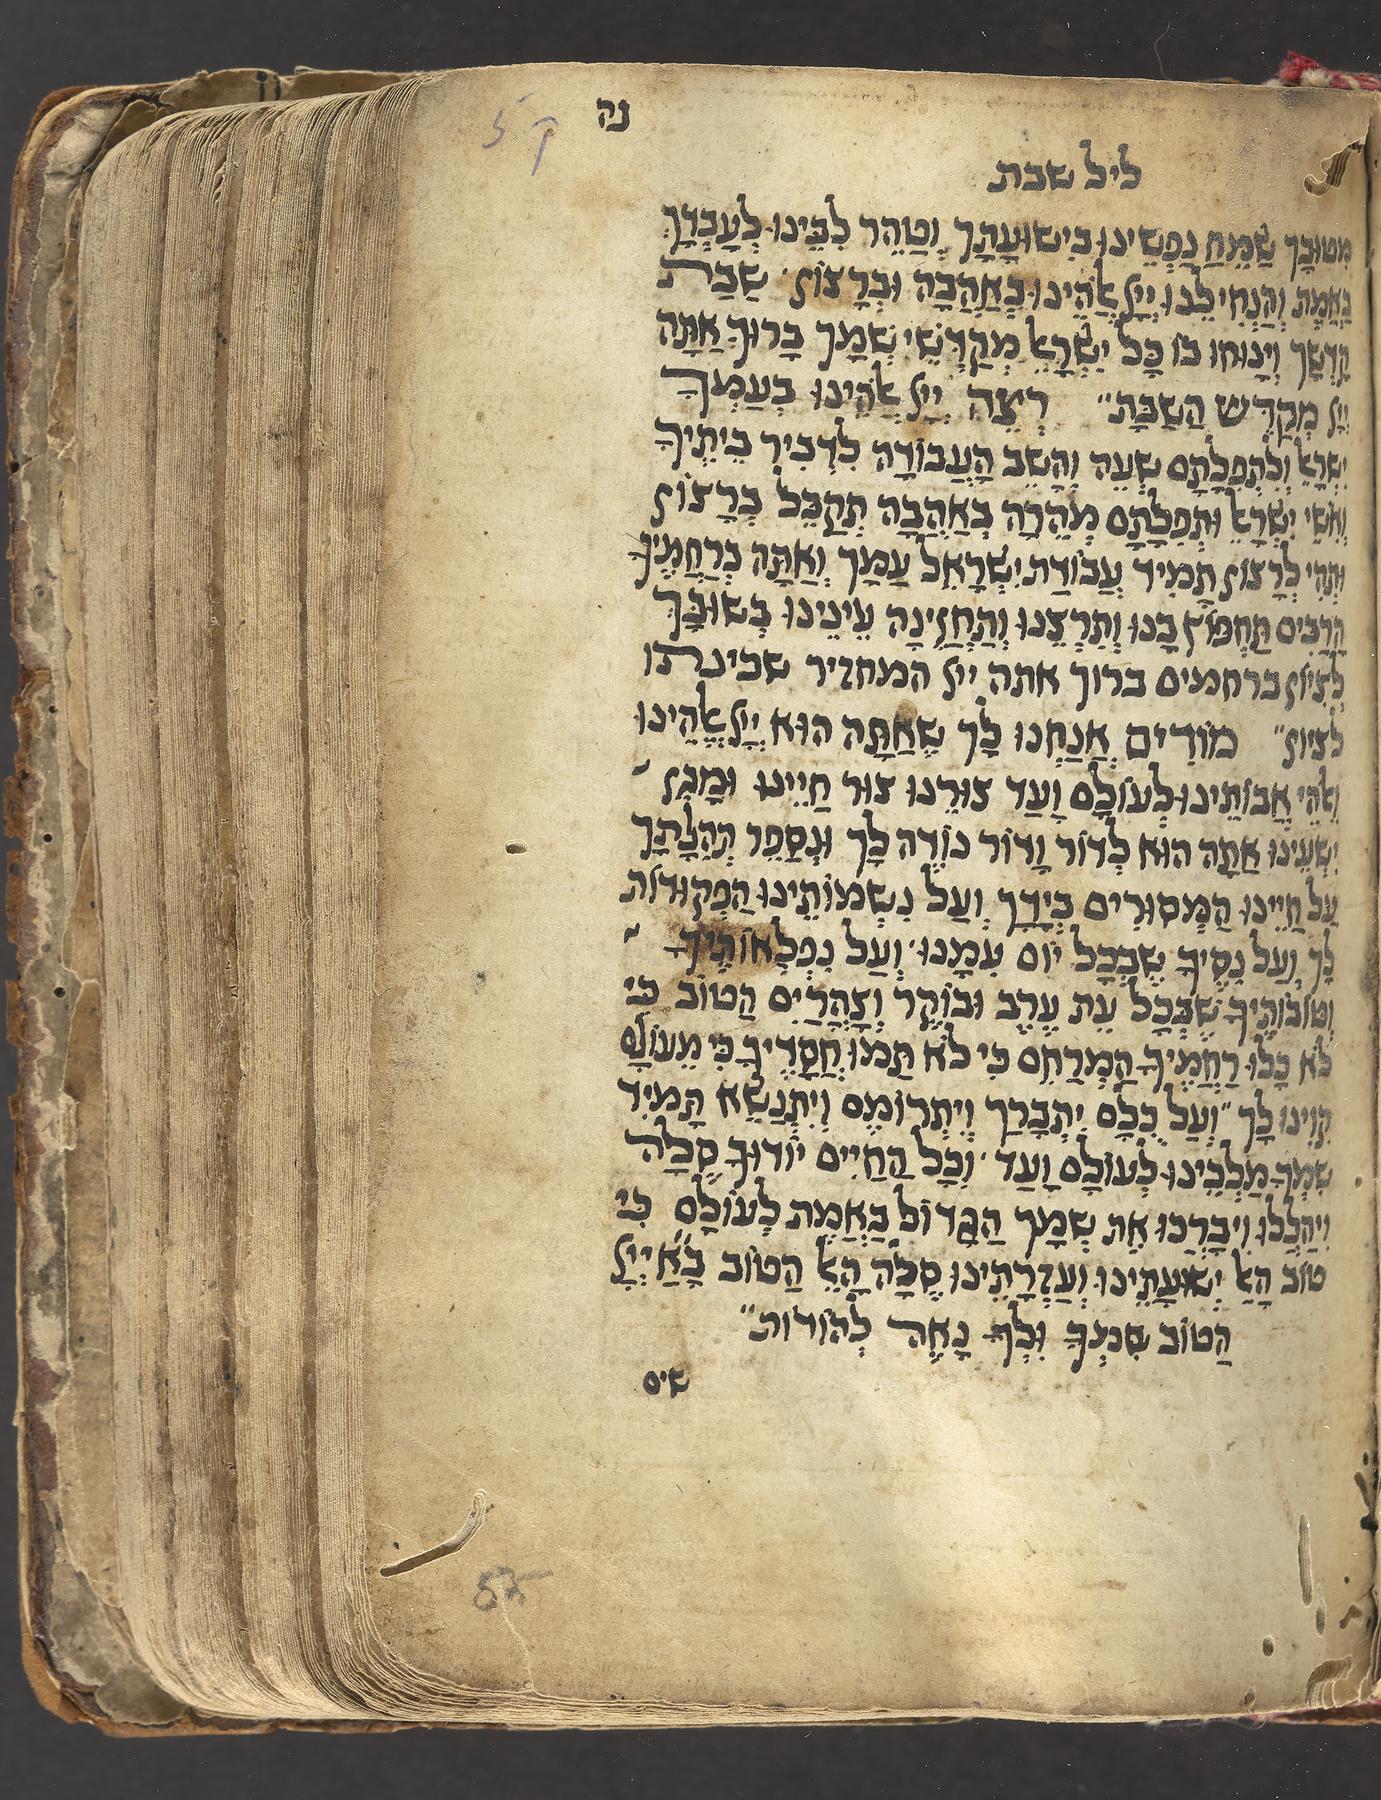 נה
ליל שבת
מִטוּבָךְ שַׂמֵחַ נַפְשֵׁינוּ בִישׁוּעָתָךְ וְטַהֵר לִבֵּינוּ לְעָבְדָךְ
בֶּאֱמֶת וְהַנְחִילֵנוּ יְיָ אֱלֹהֵינוּ בְּאַהֲבָה וּבְרָצוֹן שַׁבַּת
קָדְשָׁךְ וְיָנוּחוּ בוֹ כָּל יִשְׂרָאֵל מְקַדְּשֵׁי שְׁמָךְ בָּרוּךְ אַתָּה
יְיָ מְקַדֵּשׁ הַשַּׁבָּת רְצֵה יְיָ אֱלֹהֵינוּ בְעַמְּךָ
יִשְׂרָאֵל וְלִתְפִלָּתָם שְׁעֵה וְהָשֵׁב הָעֲבוֹדָה לִדְבִיר בֵּיתֶיךָ
וְאִשֵׁי יִשְׂרָאֵל וּתְפִלָתָם מְהֵרָה בְּאַהֲבָה תְקַבֵּל בְּרָצוֹן
וּתְהִי לְרָצוֹן תָּמִיד עֲבוֹדַת יִשְׂרָאֵל עַמָּךְ וְאַתָּה בְרַחֲמֶיךָ
הָרַבִּים תַּחְפּוֹץ בָּנוּ וְתִרְצֵנוּ וְתֶחֱזֶינָה עֵינֵינוּ בְּשׁוּבָךְ
לְצִיּוֹן ברחמים ברוך אתה ייי המחזיר שכינתו
לציון מוֹדִים אֲנַחְנוּ לָךְ שֶׁאַתָּה הוּא יְיָ אֱלֹהֵינוּ
וֵאלֹהֵי אֲבוֹתֵינוּ לְעוֹלָם וָעֶד צוּרֵנוּ צוּר חַיֵּינוּ וּמָגֵן
יִשְׁעֵינוּ אַתָּה הוּא לְדוֹר וָדוֹר נוֹדֶה לָךְ וּנְסַפֵּר תְּהִלָּתָךְ
עַל חַיֵּינוּ הַמְּסוּרִים בְּיָדָךְ וְעַל נִשְׁמוֹתֵינוּ הַפְּקוּדוֹת
לָךְ וְעַל נִסֶּיךָ שֶׁבְּכָל יוֹם עִמָּנוּ וְעַל נִפְלְאוֹתֶיךָ
וְטוֹבוֹתֶיךָ שֶׁבְּכָל עֵת עֶרֶב וּבוֹקֶר וְצָהֳרַיִם הַטּוֹב כִּי
לֹא כָלוּ רַחֲמֶיךָ הַמְרַחֵם כִּי לֹא תַּמּוּ חֲסָדֶיךָ כִּי מֵעוֹלָם
קִוִּינוּ לָךְ וְעַל כֻּלָּם יִתְבָּרַךְ וְיִתְרוֹמֵם וְיִתְנַשֵּׂא תָּמִיד
שִׁמְךָ מַלְכֵּינוּ לְעוֹלָם וָעֶד וְכָל הַחַיִּים יוֹדוּךָ סֶּלָה
וִיהַלְלוּ וִיבָרְכוּ אֶת שְׁמָךְ הַגָּדוֹל בֶּאֱמֶת לְעוֹלָם כִּי
טוֹב הָאֵל יְשׁוּעָתֵינוּ וְעֶזְרָתֵינוּ סֶלָה הָאֵל הַטּוֹב בָּאַ יְיָ
הַטּוֹב שִׁמְךָ וּלְךָ נָאֶה לְהוֹדוֹת
שים